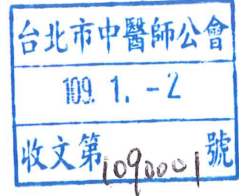 台北市中醫師公會
109. 1. -2
收文第1090001號